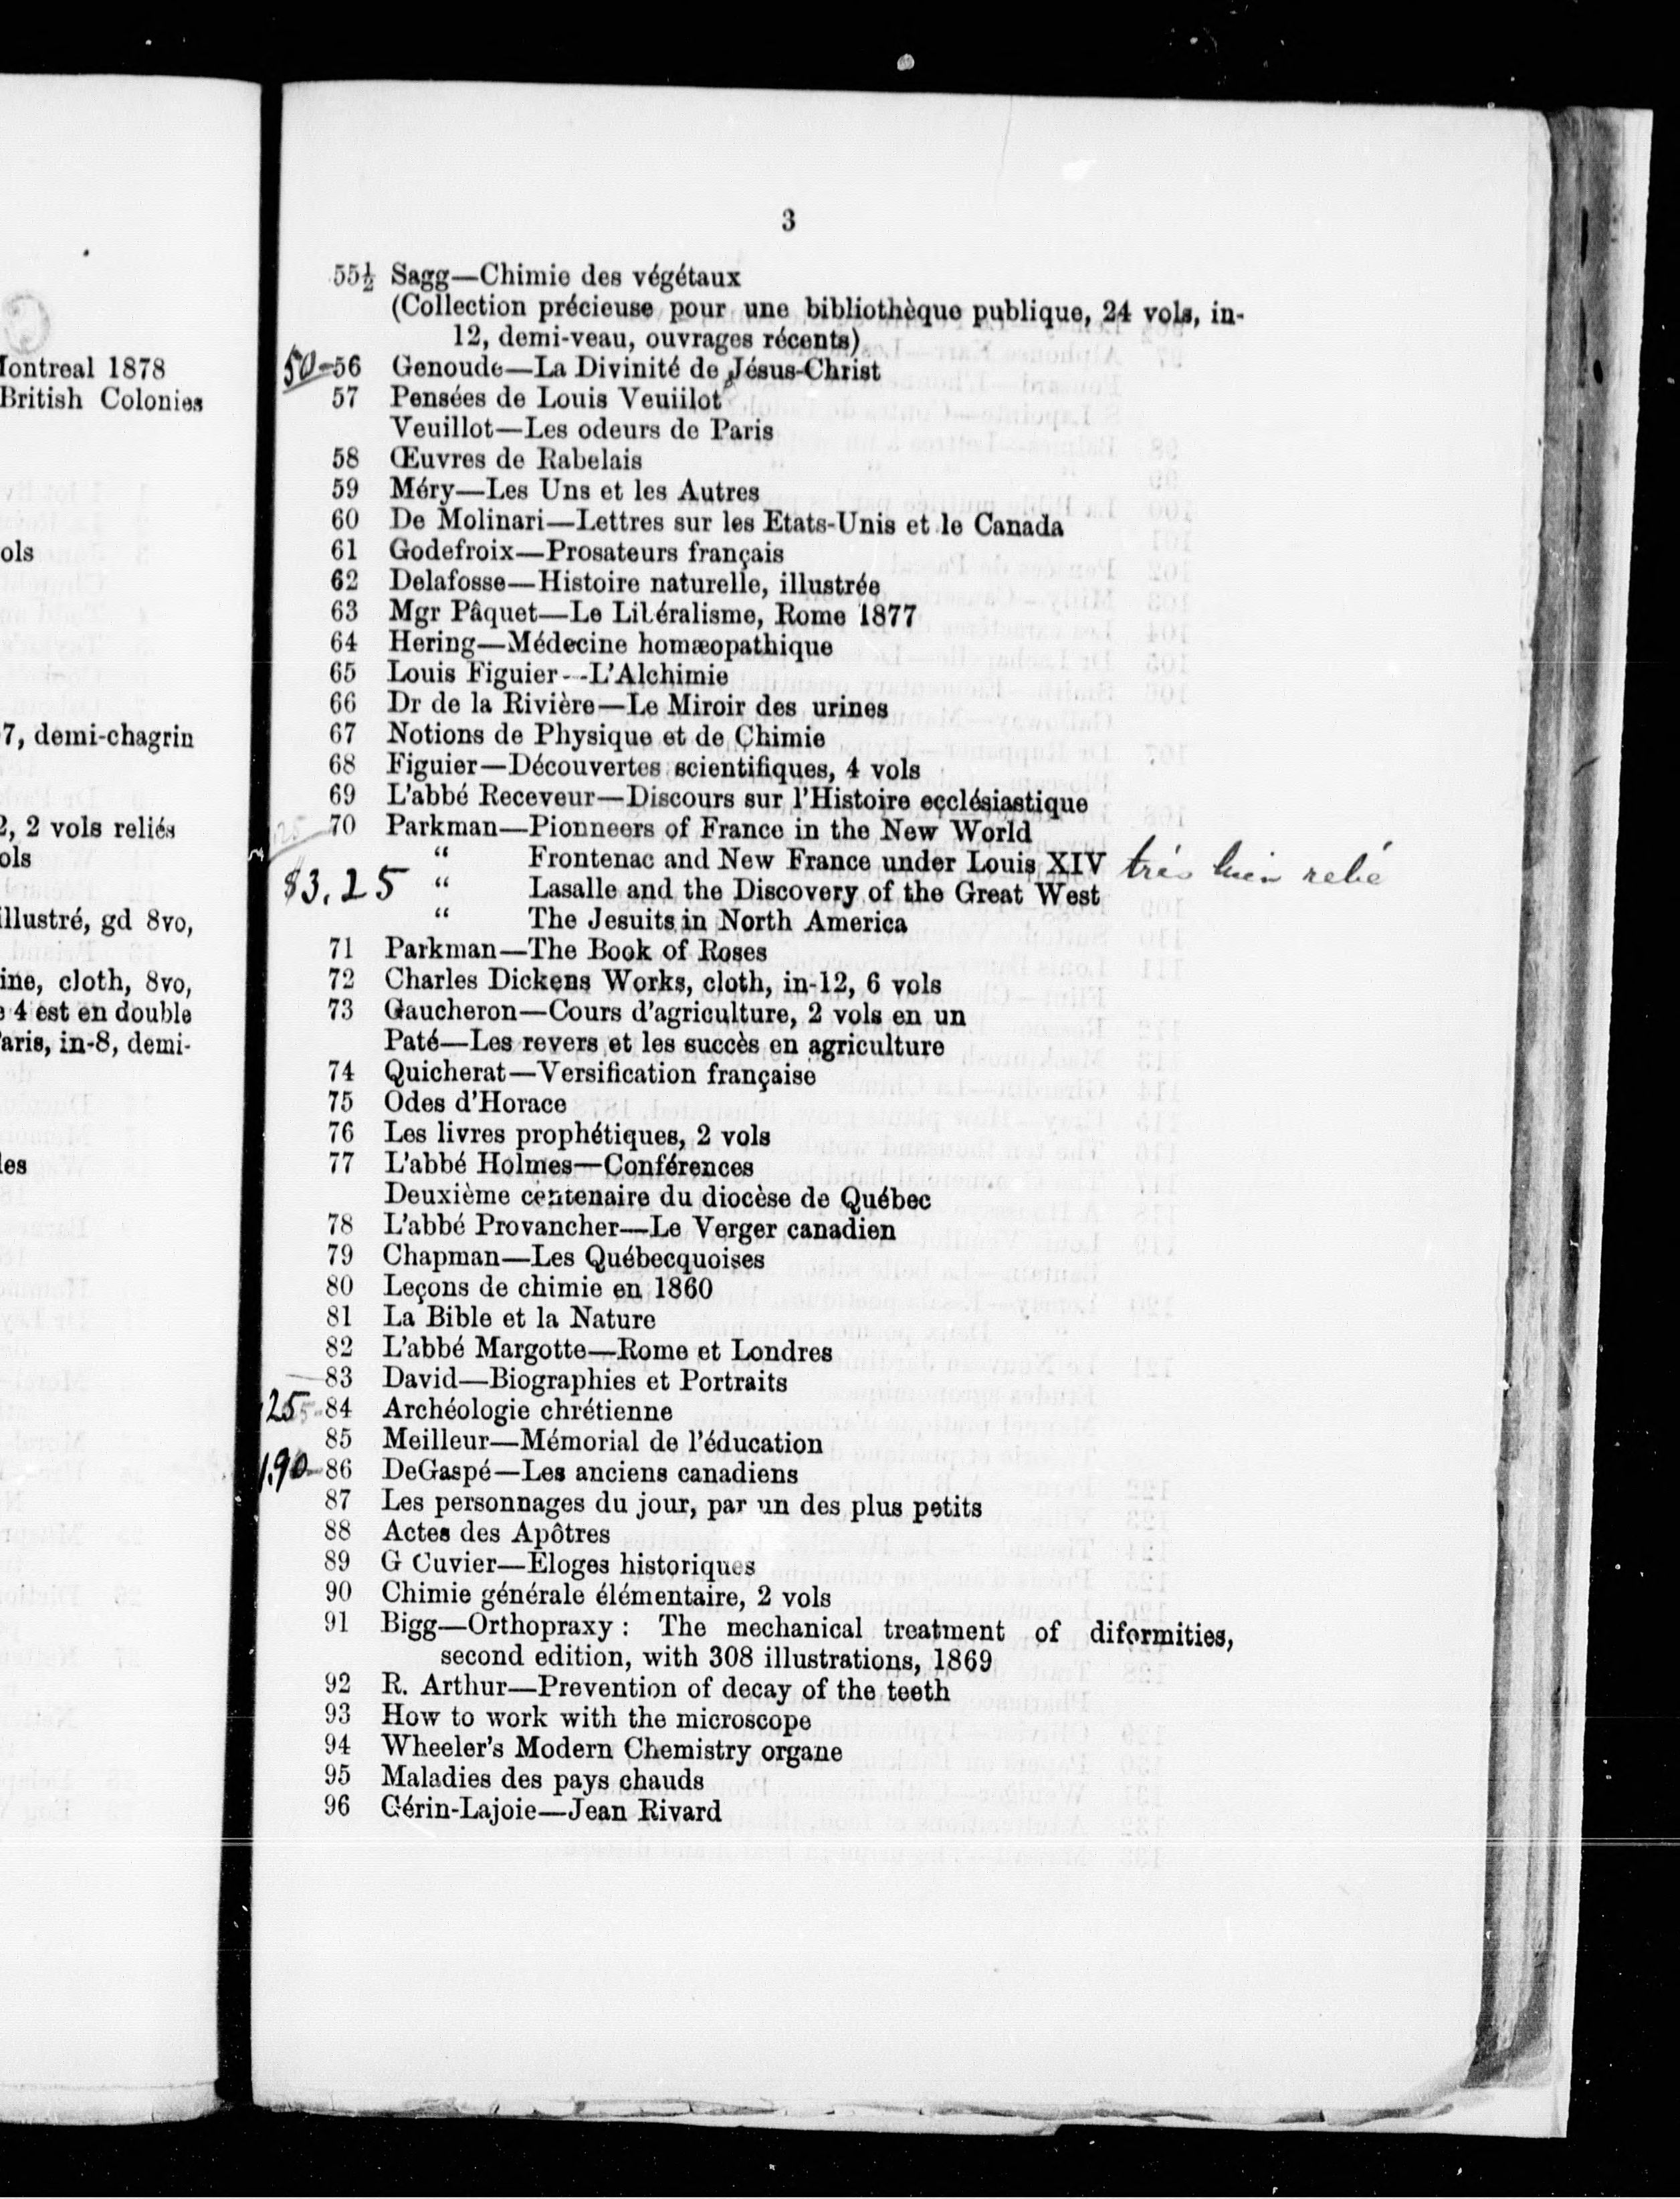 Montreal 1878
British Colonies
ols
7, demi-chagrin
2, 2 vols reliés
ols
illustré, gd 8vo,
ine, cloth, 8vo,
4 est en double
aris, in-8, demi-
les
3
55½ Sagg—Chimie des végétaux
(Collection précieuse pour une bibliothèque publique, 24 vols, in-
12, demi-veau, ouvrages récents)
50-56 Genoude—La Divinité de Jésus-Christ
57 Pensées de Louis Veuiilot
Veuillot—Les odeurs de Paris
58 Œuvres de Rabelais
59 Méry—Les Uns et les Autres
60 De Molinari—Lettres sur les Etats-Unis et le Canada
61 Godefroix—Prosateurs français
62 Delafosse—Histoire naturelle, illustrée
63 Mgr Pâquet—Le Libéralisme, Rome 1877
64 Hering—Médecine homæopathique
65 Louis Figuier--L'Alchimie
66 Dr de la Rivière—Le Miroir des urines
67 Notions de Physique et de Chimie
68 Figuier—Découvertes scientifiques, 4 vols
69 L'abbé Receveur—Discours sur l'Histoire ecclésiastique
70 Parkman—Pionneers of France in the New World
“ Frontenac and New France under Louis XIV très bien relié
$3.25 “ Lasalle and the Discovery of the Great West
“ The Jesuits in North America
71 Parkman—The Book of Roses
72 Charles Dickens Works, cloth, in-12, 6 vols
73 Gaucheron—Cours d'agriculture, 2 vols en un
Paté—Les revers et les succès en agriculture
74 Quicherat—Versification française
75 Odes d'Horace
76 Les livres prophétiques, 2 vols
77 L'abbé Holmes—Conférences
Deuxième centenaire du diocèse de Québec
78 L'abbé Provancher—Le Verger canadien
79 Chapman—Les Québecquoises
80 Leçons de chimie en 1860
81 La Bible et la Nature
82 L'abbé Margotte—Rome et Londres
83 David—Biographies et Portraits
25 84 Archéologie chrétienne
85 Meilleur—Mémorial de l'éducation
1.90-86 DeGaspé—Les anciens canadiens
87 Les personnages du jour, par un des plus petits
88 Actes des Apôtres
89 G Cuvier—Eloges historiques
90 Chimie générale élémentaire, 2 vols
91 Bigg—Orthopraxy : The mechanical treatment of diformities,
second edition, with 308 illustrations, 1869
92 R. Arthur—Prevention of decay of the teeth
93 How to work with the microscope
94 Wheeler's Modern Chemistry organe
95 Maladies des pays chauds
96 Gérin-Lajoie—Jean Rivard